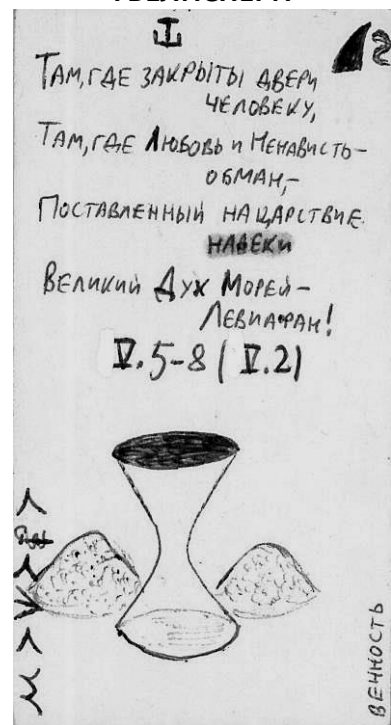 ТАМ, ГДЕ ЗАКРЫТЫ ДВЕРИ
ЧЕЛОВЕКУ,
ТАМ, ГДЕ ЛЮБОВЬ И НЕНАВИСТЬ –
ОБМАН, –
ПОСТАВЛЕННЫЙ НА ЦАРСТВИЕ
НАВЕКИ
ВЕЛИКИЙ ДУХ МОРЕЙ –
ЛЕВИАФАН!
V. 5-8 ( V. 2)
ВЕЧНОСТЬ